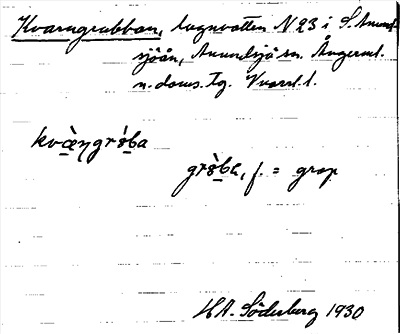 Kvarngrubban, lagnvatten N 23 i S. Anund-
sjöån, Anundsjö sn. Ångerml.
n. doms. Tg.
kvæ̀ŋgròba
gròba, f. = grop
H A. Söderberg 1930